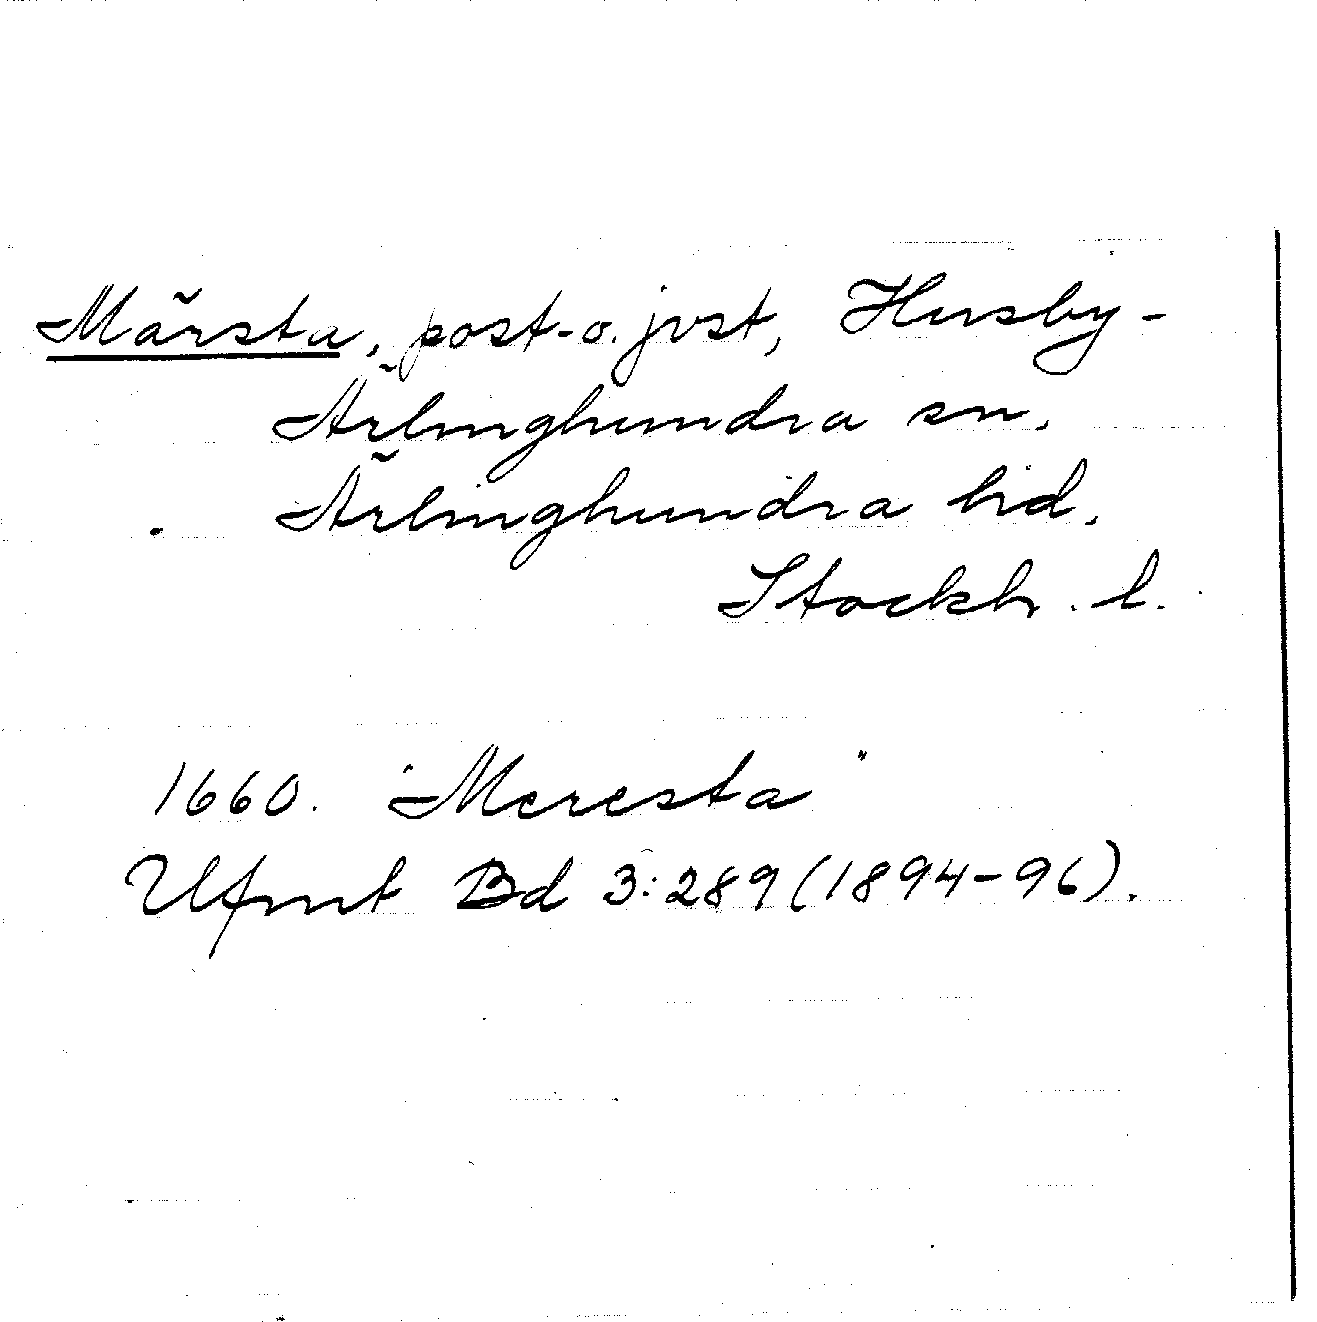 Märsta, post- o. jvst, Husby-
Ärlinghundra sn.
Ärlinghundra hd,
Stockh. l.
1660. "Meresta"
Ufmt Bd 3:289 (1894-96).